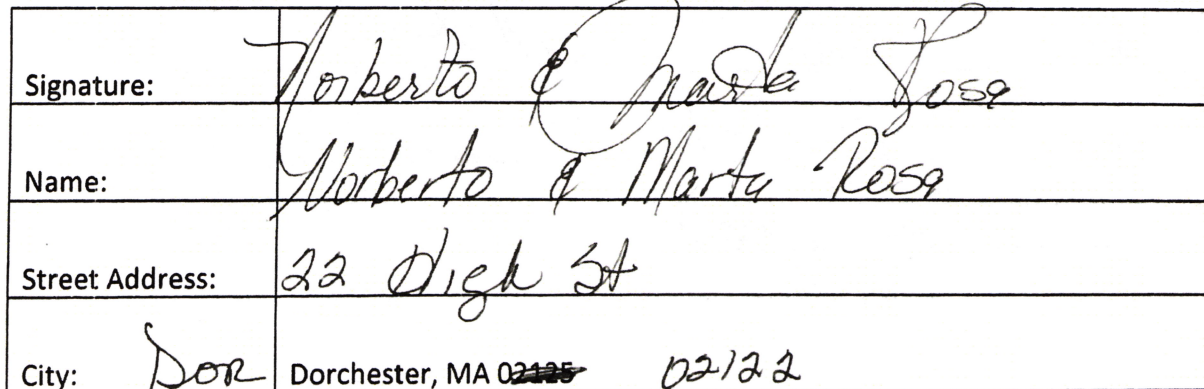 Signature: Norberto & Marta Rosa
Name: Norberto & Marta Rosa
Street Address: 22 High St
City: Dor Dorchester, MA 02125 02122